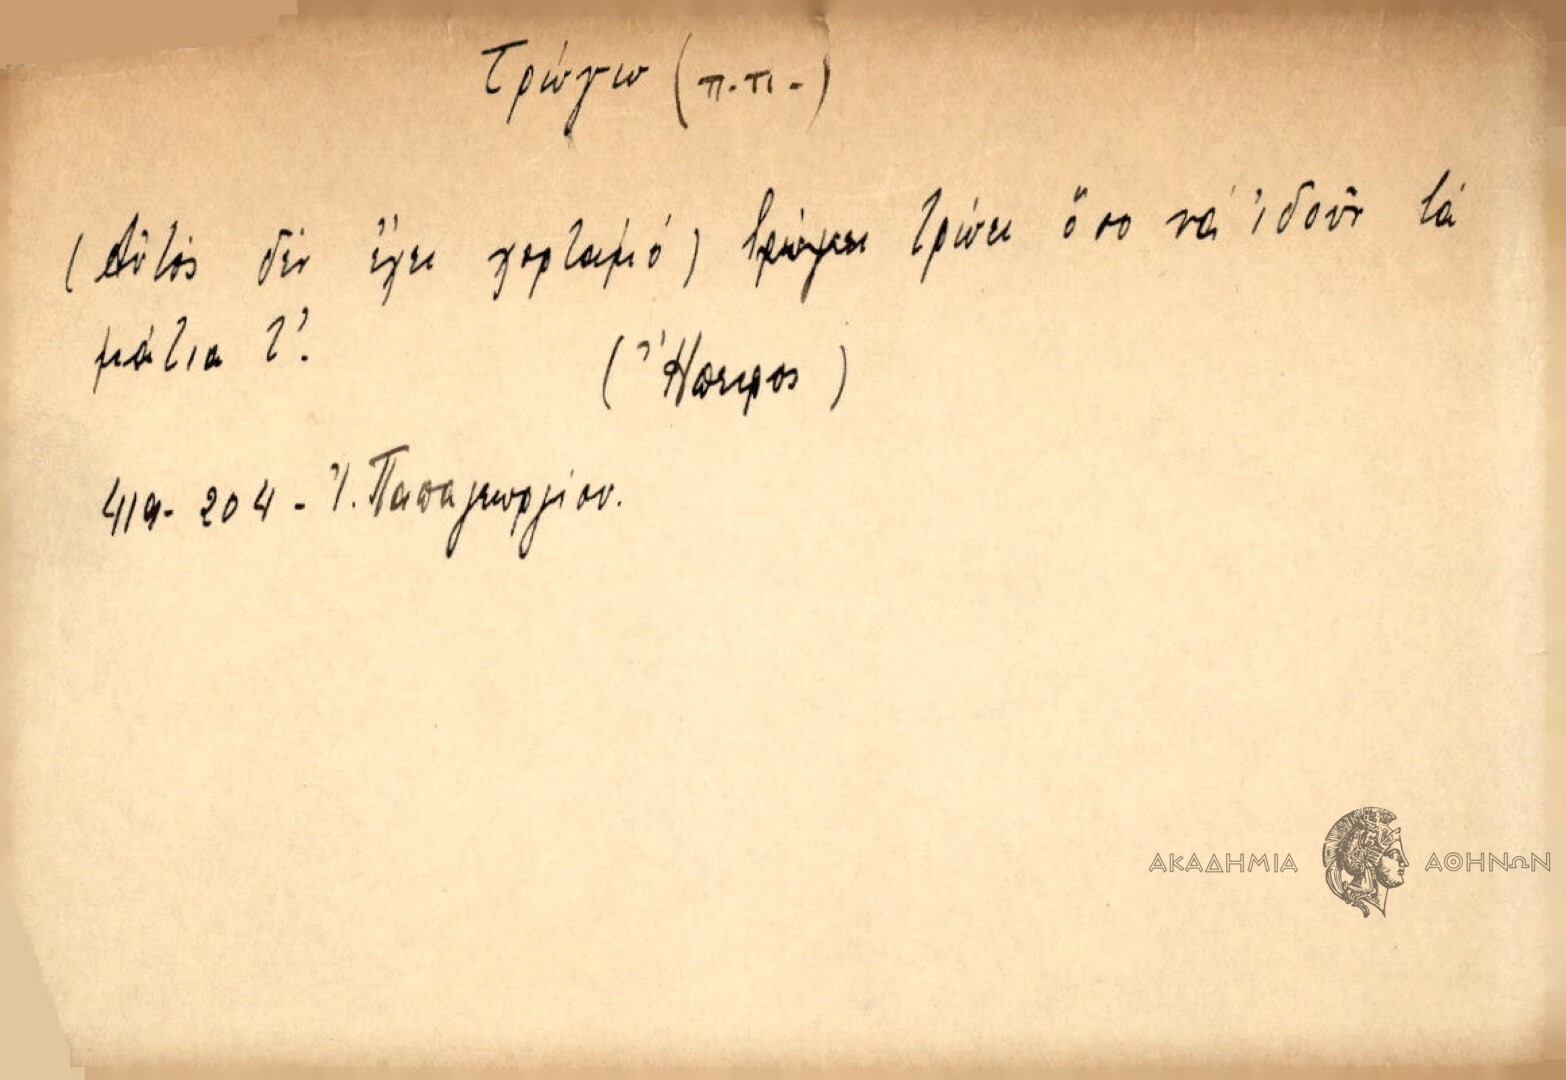 Τρώγω (π.π.-)
(Αὐτὸς δὲν ἔχει χορταμό) τρώγει τρώει ὅσο νὰ ἰδοῦν τὰ
μάτια τ'.
(Ἤπειρος)
419-204-Ἰ. Παπαγεωργίου.
ΑΚΑΔΗΜΙΑ ΑΘΗΝΩΝ